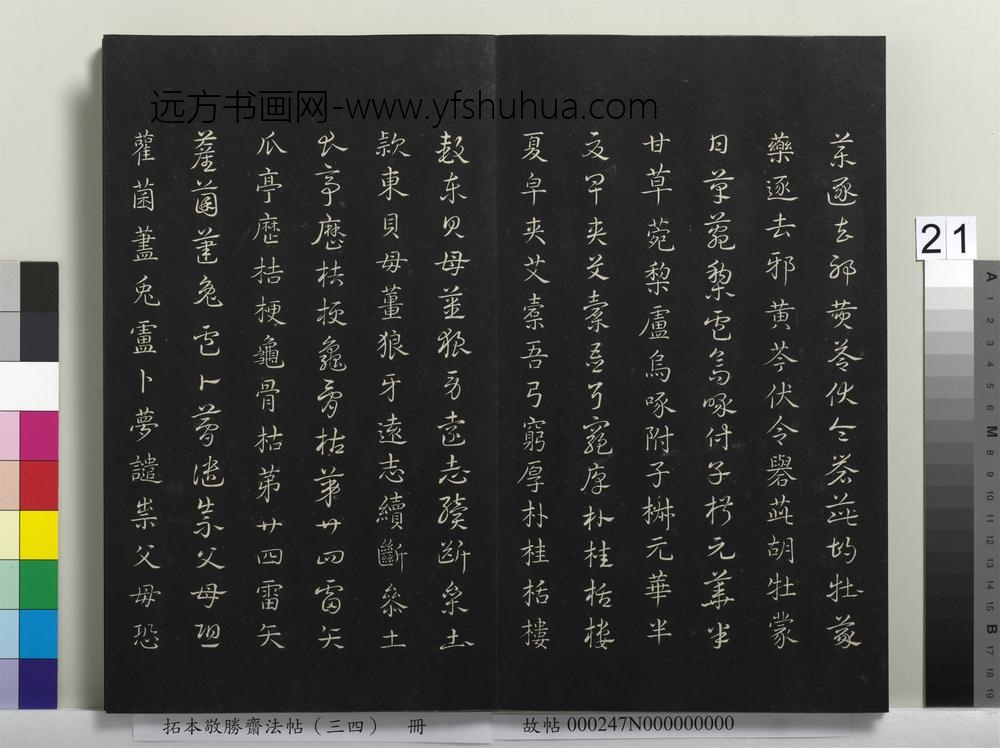 远方书画网-www.yfshuhua.com
藥逐去邪黄芩伏令礜茈胡牡蒙
藥逐去邪黄芩伏令礜茈胡牡蒙
甘草菀梨盧烏啄附子椒元華半
甘草菀梨盧烏啄附子椒元華半
夏皁夾艾橐吾弓窮厚朴桂栝樓
夏皁夾艾橐吾弓窮厚朴桂栝樓
款東貝母薑狼牙遠志續斷參土
款東貝母薑狼牙遠志續斷參土
瓜亭歷桔梗龜骨枯第廿四雷矢
瓜亭歷桔梗龜骨枯第廿四雷矢
雚菌藎兔盧卜夢譴祟父母恐
雚菌藎兔盧卜夢譴祟父母恐
21
拓本敬勝齋法帖（三四） 冊
故帖 000247N000000000
A 1 2 3 4 5 6 M 8 9 10 11 12 13 14 15 B 17 18 19